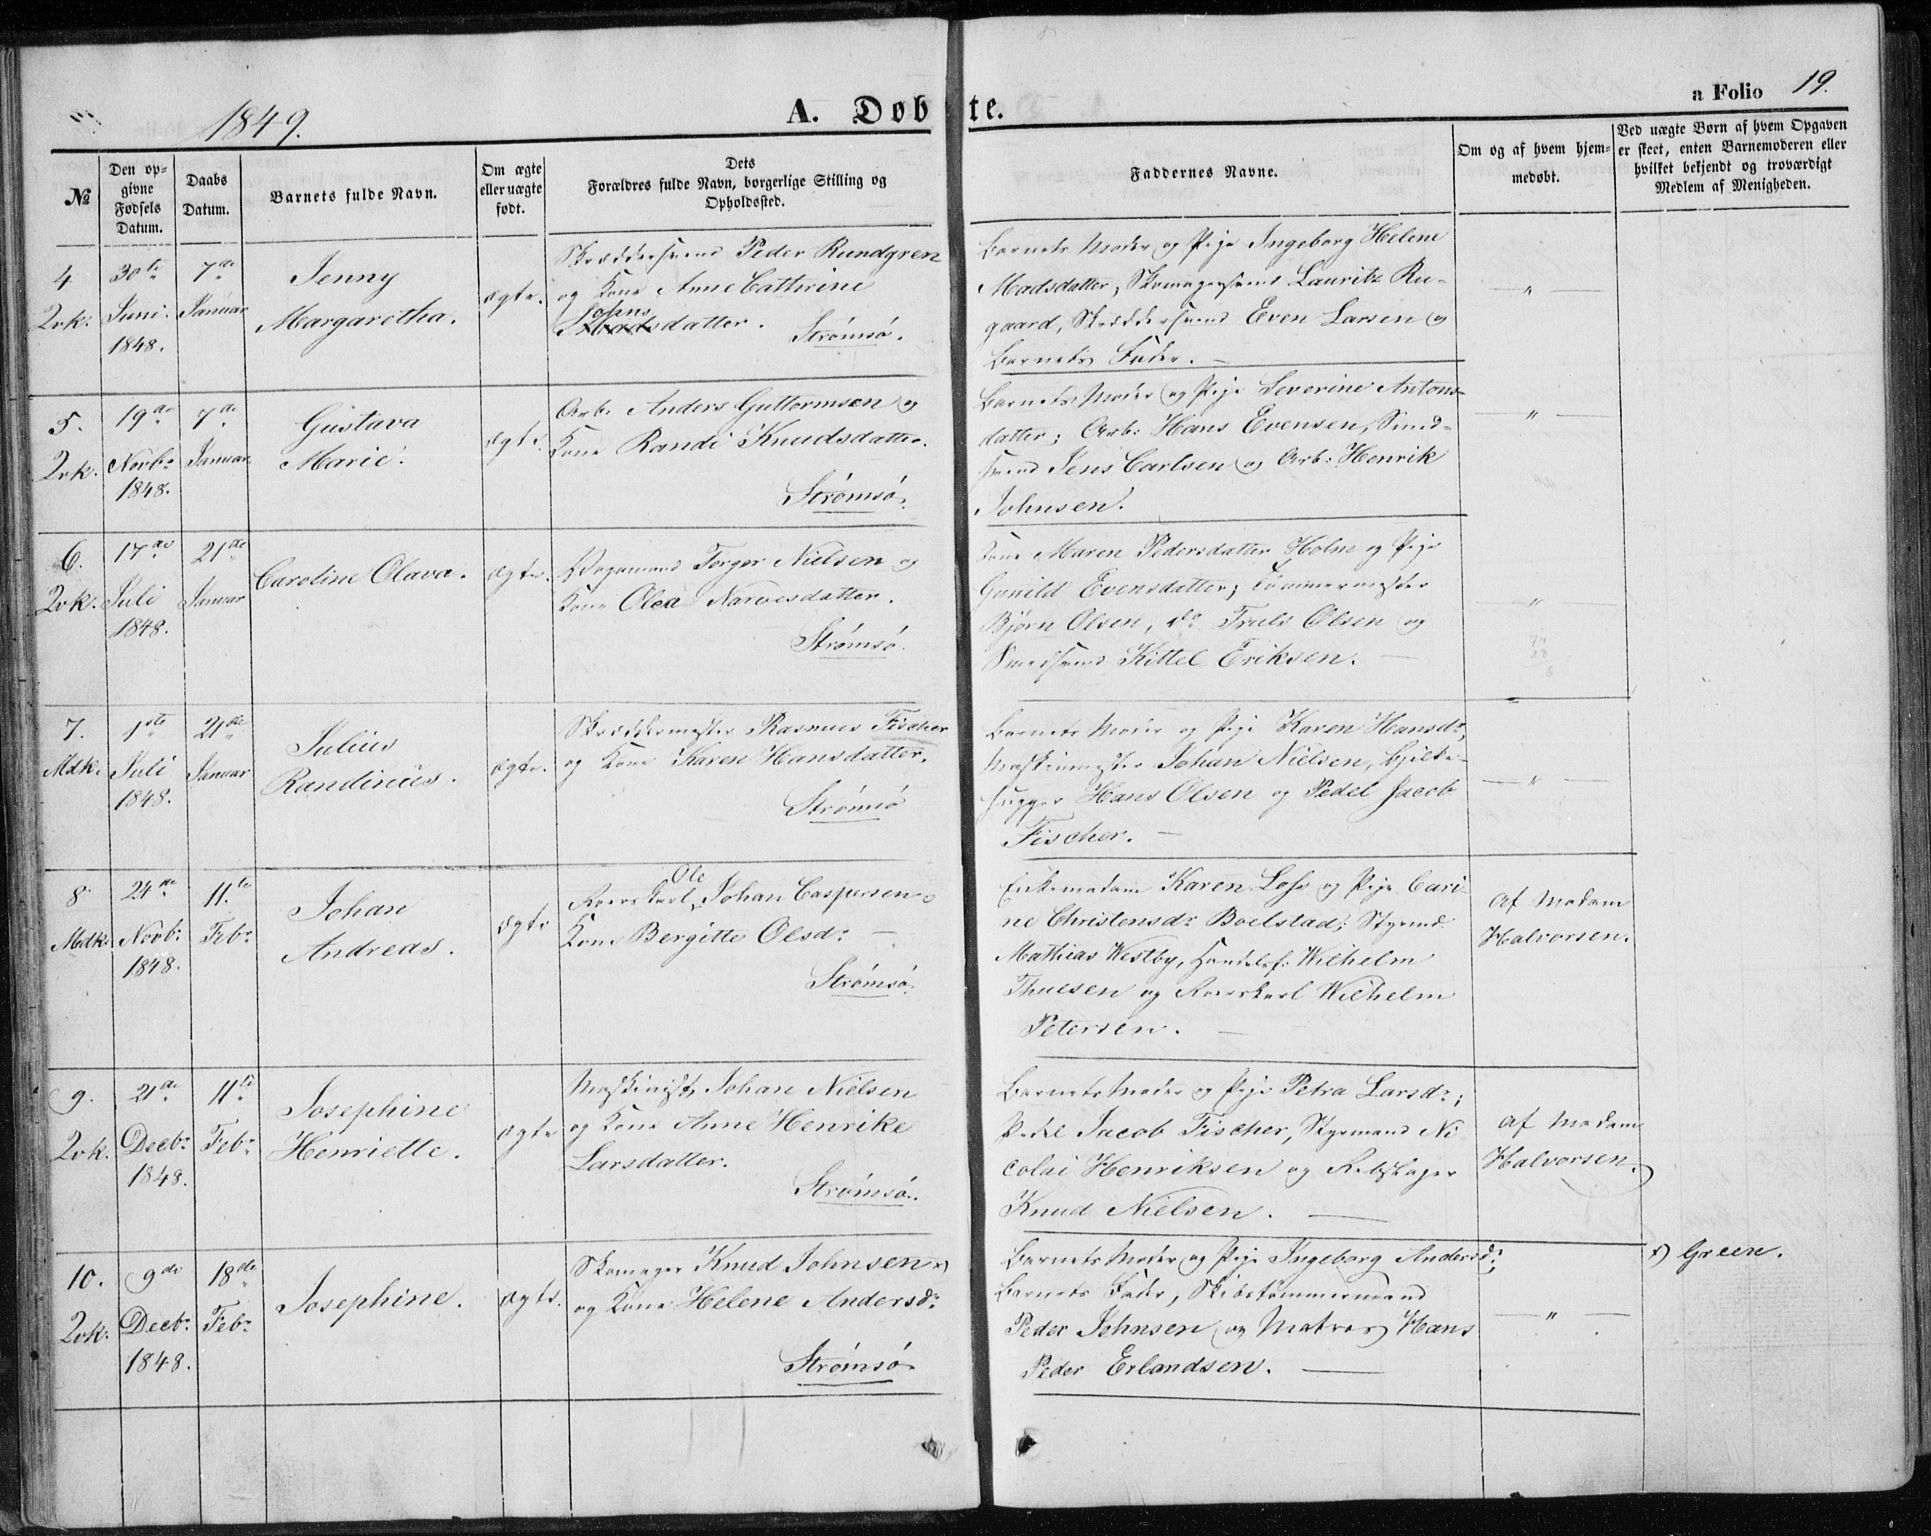 1849.
A. Døbte.
a Folio 19.
№
Den opgivne Fødsels Datum.
Daabs Datum.
Barnets fulde Navn.
Om ægte eller uægte født.
Dets
Forældres fulde Navn, borgerlige Stilling og
Opholdssted.
Faddernes Navne.
Om og af hvem hjemmedøbt.
Ved uægte Børn af hvem Opgaven
er skeet, enten Barnemoderen eller
hvilket bekjendt og troværdigt
Medlem af Menigheden.
4
Qvk.
30te
Juni
1848.
7de
Januar
Jenny
Margaretha.
ægte.
Skræddersvend Peder Rundgren
og Kone Anne Cathrine
Johnsdatter.
Strømsø.
Barnets Moder og Pige Ingeborg Helene
Madsdatter, Skomagersvend Lauritz Ru-
gaard, Skræddersvend Even Larsen og
Barnets Fader. —
— " —
5.
Qvk.
19de
Novbr
1848.
7de
Januar
Gustava
Marie.
ægte.
Arb. Anders Guttormsen og
Kone Randi Knudsdatter.
Strømsø.
Barnets Moder og Pige Severine Antons-
datter; Arb: Hans Evensen, Smed-
svend Jens Carlsen og Arb: Henrik
Johnsen.
— " —
6.
Qvk.
17de
Juli
1848.
21de
Januar
Caroline Olava.
ægte.
Vognmand Torger Nielsen og
Kone Olea Narvesdatter.
Strømsø.
Kone Maren Pedersdatter Holm og Pige
Gunild Evensdatter; Tømmermester
Bjørn Olsen, do Truls Olsen og
Smedsvend Kittel Eriksen. —
— " —
74
28
6
7.
Mdk.
1ste
Juli
1848.
21de
Januar
Julius
Randinius.
ægte.
Skræddermester Rasmus Fischer
og Kone Karen Hansdatter.
Strømsø
Barnets Moder og Pige Karen Hansdr,
Maskinmester Johan Nielsen, Bjelke-
hugger Hans Olsen og Pedel Jacob
Fischer. —
— " —
8
Mdk.
24de
Novbr
1848.
11te
Febr
Johan
Andreas.
ægte
Ole
Roerskarl Johan Caspersen og
Kone Bergitte Olsdr —
Strømsø.
Enkemadam Karen Loss og Pige Cari-
ne Christensdr Boelstad; Styrmd
Mathias Westby, Handelsf: Wilhelm
Thuesen og Roerskarl Wilhelm
Petersen. —
Af Madam
Halvorsen.
9.
Qvk.
21de
Decbr
1848.
11te
Febr
Josephine
Henriette.
ægte
Maskinist Johan Nielsen
og Kone Anne Henrike
Larsdatter.
Strømsø.
Barnets Moder og Pige Petra Larsdr;
Pedel Jacob Fischer, Styrmand Ni-
colai Henriksen og Rebslager
Knud Nielsen. —
Af Madam
Halvorsen.
10.
Qvk.
9de
Decbr
1848.
18de
Febr
Josephine.
ægte.
Skomager Knud Johnsen x)
og Kone Helene Andersdr
Strømsø
Barnets Moder og Pige Ingeborg Andersdr;
Barnets Fader, Skibstømmermand
Peder Johnsen og Matros Hans
Peder Erlandsen. —
— " —
x) Green.